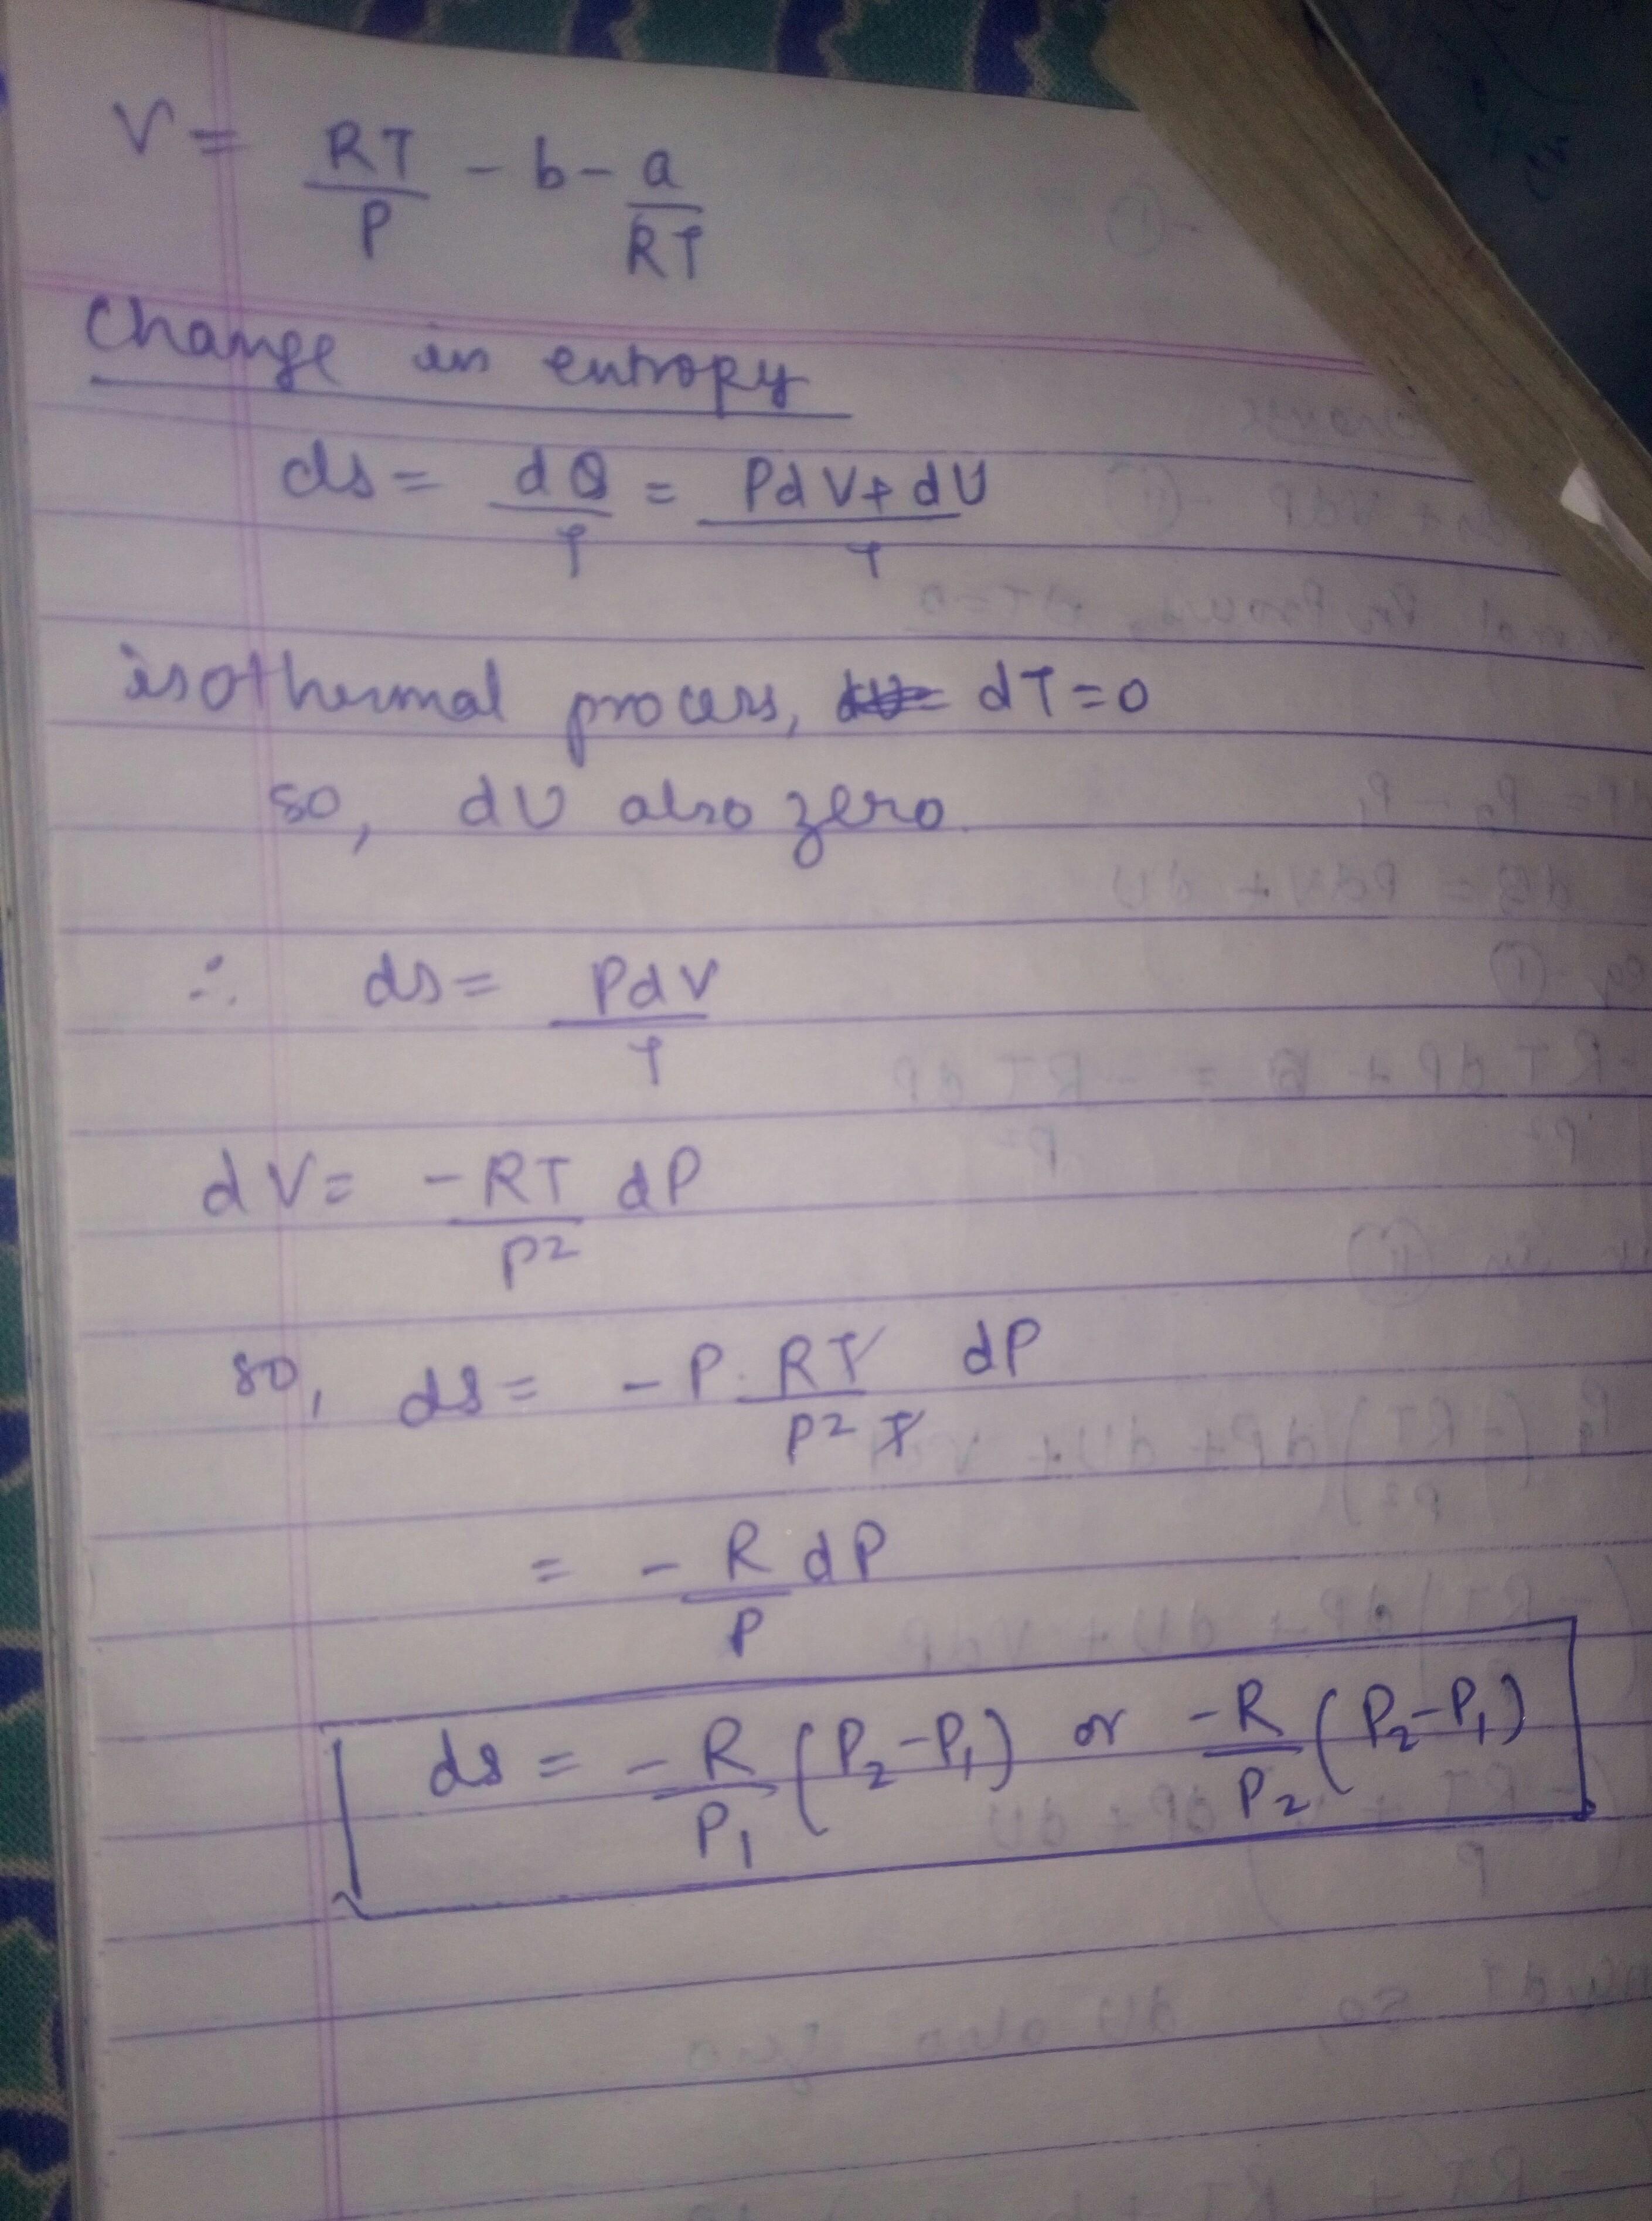 V = RT/P - b - a/RT
Change in entropy
ds = dQ/T = PdV + dU/T
isothermal process, dT = 0
so, dU also zero.
∴ ds = PdV/T
dV = -RT/P² dP
so, ds = -P. RT/P² T dP
= -R/P dP
ds = -R/P₁ (P₂-P₁) or -R/P₂ (P₂-P₁)